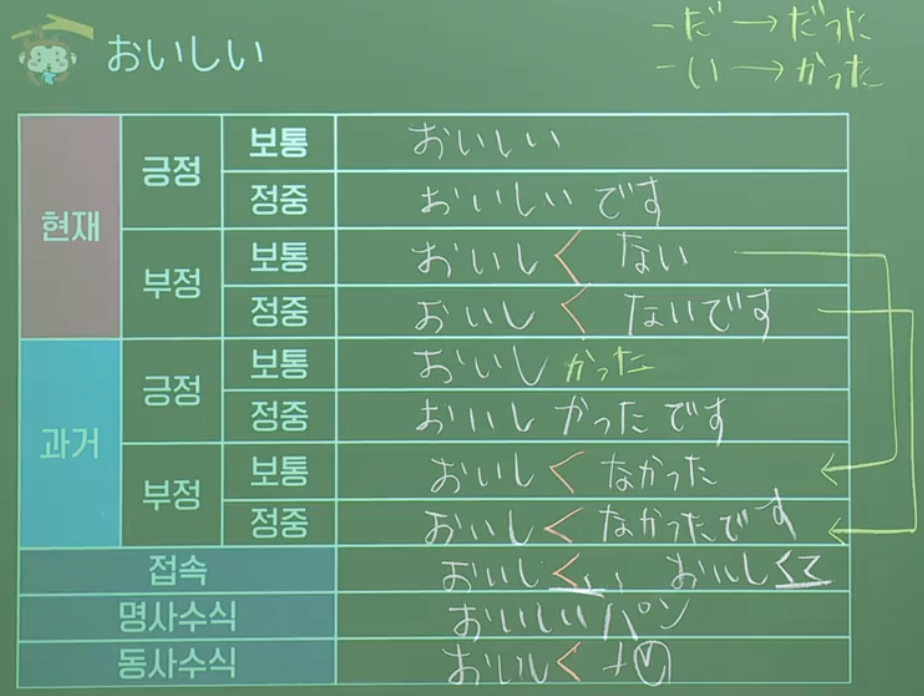 おいしい
-だ → だった
-い → かった
현재 긍정 보통 おいしい
정중 おいしいです
부정 보통 おいしく ない
정중 おいしく ないです
과거 긍정 보통 おいしかった
정중 おいしかったです
부정 보통 おいしく なかった
정중 おいしく なかったです
접속 おいしく、, おいしくて
명사수식 おいしいパン
동사수식 おいしく +Ⓥ